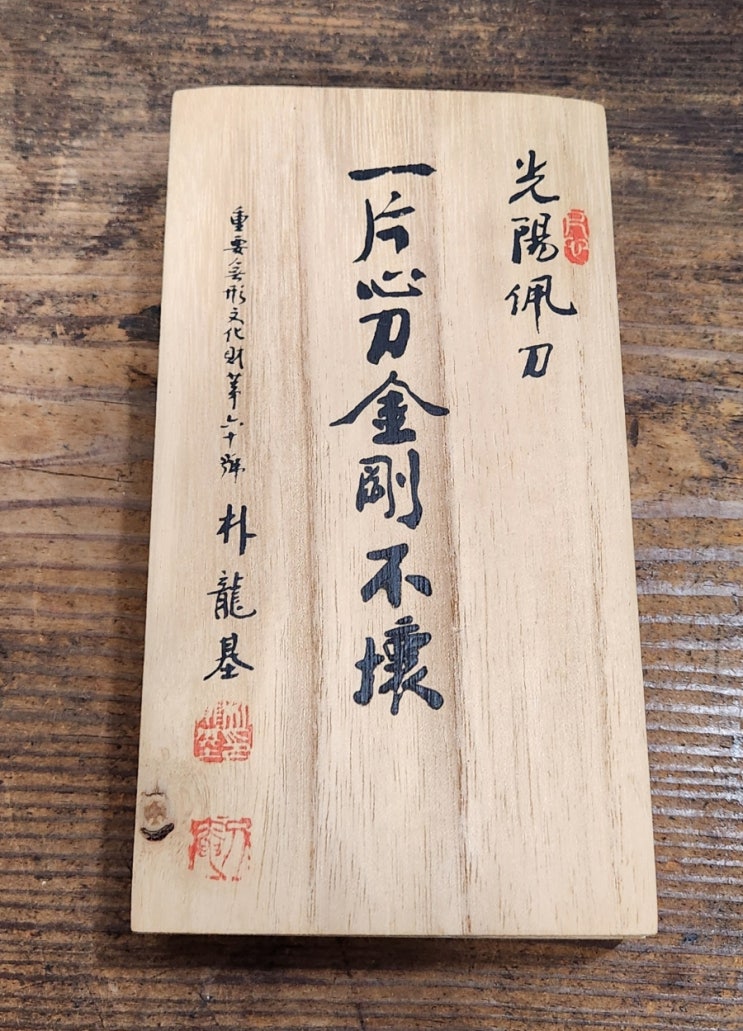 光陽佩刀
一片心刀金剛不壞
重要無形文化財第六十號 朴龍基